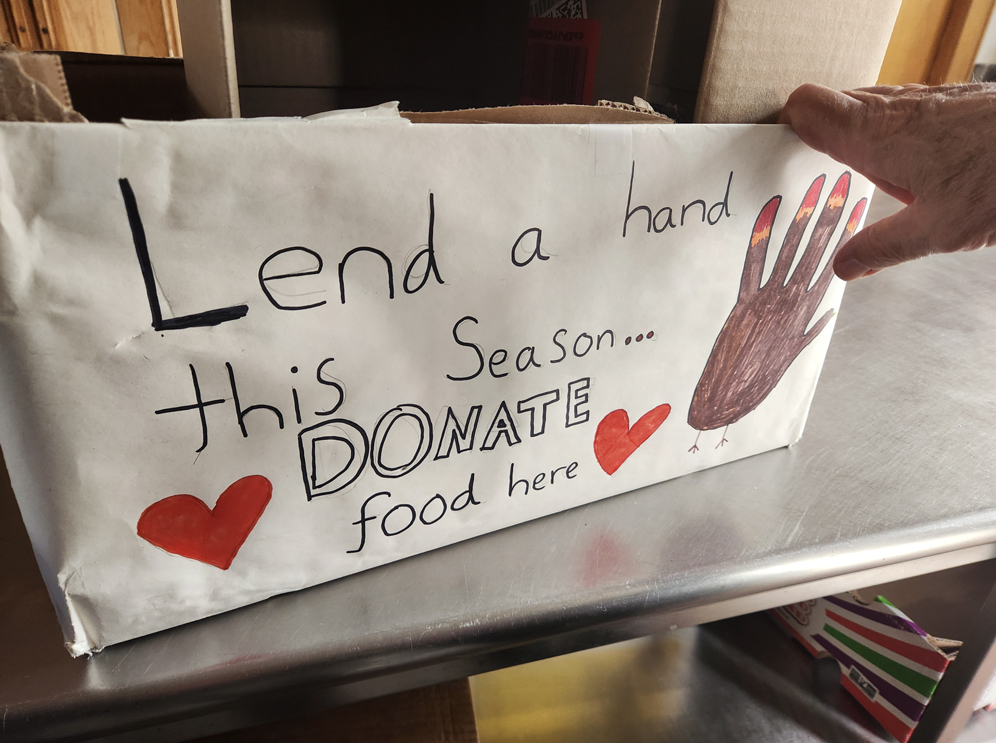 Lend a hand
this Season...
DONATE
food here